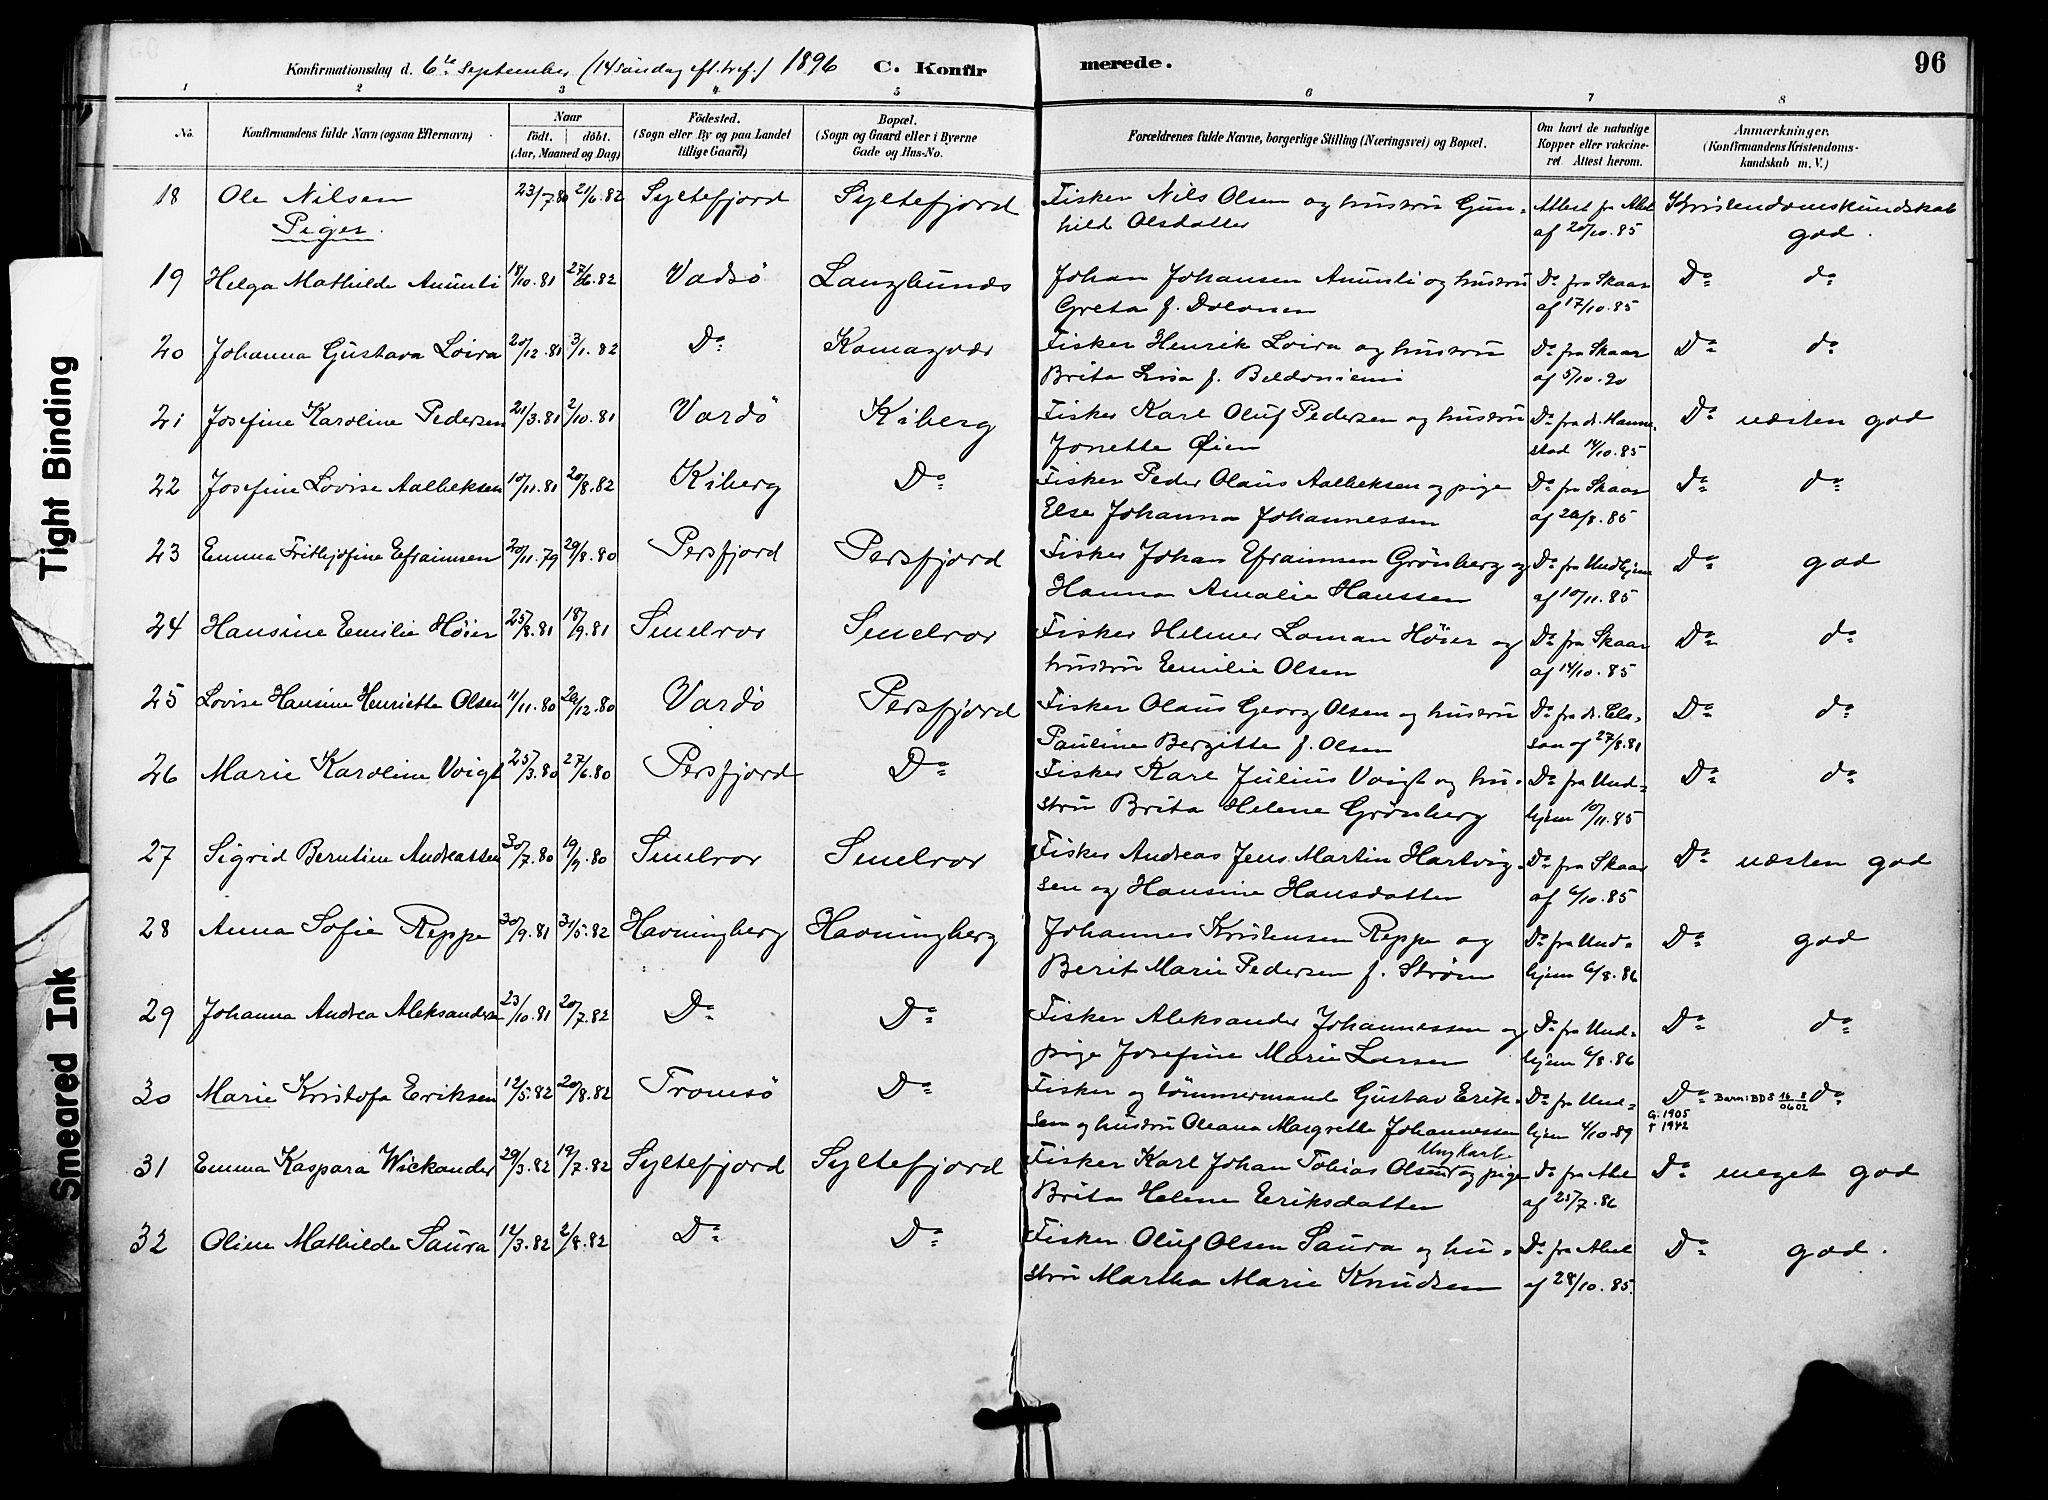 Konfirmationsdag d. 6te September (14 søndag eft. tref.) 1896 C. Konfirmerede. 96
1 2 3 4 5 6 7 8
No. Konfirmandens fulde Navn (ogsaa Efternavn) Naar født. døbt. (Aar, Maaned og Dag) Fødested. (Sogn eller By og paa Landet tillige Gaard) Bopæl. (Sogn og Gaard eller i Byerne Gade og Hus-No. Forældrenes fulde Navne, borgerlige Stilling (Næringsvei) og Bopæl. Om havt de naturlige Kopper eller vakcineret. Attest herom. Anmærkninger. (Konfirmandens Kristendomskundskab m. V.)
18 Ole Nilsen 23/7.80 21/6.82 Syltefjord Syltefjord Fisker Nils Olsen og hustru Gun- Attest fra Abel Kristendomskundskab
Piger. hild Olsdatter af 20/10.85 god.
19 Helga Mathilde Anunti 18/10.81 27/6.82 Vadsö Langbunds Johan Johansen Anunti og hustru Do fra Skaar Do do
Greta f. Dolonen af 17/10.85
20 Johanna Gustava Loira 20/12.81 3/1.82 Do Komagvær Fisker Henrik Loira og hustru Do fra Skaar Do do
Brita Lisa f. Beldoniemi af 5/10.90
21 Josefine Karoline Pedersen 21/3.81 2/10.81 Vardö Kiberg Fisker Karl Oluf Pedersen og hustru Do fra dr. Hanne- Do næsten god
Jonette Øien stad 14/10.85
22 Josefine Lovise Aalbeksen 10/11.81 20/8.82 Kiberg Do Fisker Peder Olaus Aalbeksen og pige Do fra Skaar Do do
Else Johanna Johannessen af 26/8.85
23 Emma Frithjofine Efraimsen 20/11.79 29/8.80 Persfjord Persfjord Fisker Johan Efraimsen Grönberg og Do fra Undhjem Do god
Hanna Amalie Hanssen af 10/11.85
24 Hansine Emilie Höier 25/8.81 18/9.81 Smelror Smelror Fisker Helmer Loman Höier og Do fra Skaar Do do
hustru Emilie Olsen af 14/10.85
25 Lovise Hansine Henriette Olsen 11/11.80 26/12.80 Vardö Persfjord Fisker Olaus Georg Olsen og hustru Do fra dr. Claa- Do do
Pauline Bergitte f. Olsen san af 27/8.81
26 Marie Karoline Voigt 25/3.80 27/6.80 Persfjord Do Fisker Karl Julius Voigt og hu- Do fra Und- Do do
stru Brita Helene Grönberg hjem 10/11.85
27 Sigrid Berntine Andreassen 30/7.80 19/9.80 Smelror Smelror Fisker Andreas Jens Martin Hartvig- Do fra Skaar Do næsten god
sen og Hansine Hansdatter af 6/10.85
28 Anna Sofie Reppe 30/9.81 31/5.82 Havningberg Havningberg Johannes Kristensen Reppe og Do fra Und- Do god
Berit Marie Pedersen f. Ström hjem 6/8.86
29 Johanna Andrea Aleksandersen 23/10.81 20/7.82 Do Do Fisker Aleksander Johannessen og Do fra Und- Do do
pige Josefine Marie Larsen hjem 6/8.86
30 Marie Kristofa Eriksen 12/5.82 20/8.82 Tromsö Do Fisker og tömmermand Gustav Erik- Do fra Und- Do Barn: BDS 16/06 8/02 do
sen og hustru Oleana Margrethe Johannessen hjem 4/10.89 G. 1905
† 1942
31 Emma Kaspara Wickander 29/3.82 19/7.82 Syltefjord Syltefjord Fisker Karl Johan Tobias Olsen og pige Do fra Abel Do meget god
Ungkarl
Brita Helene Eriksdatter af 25/7.86
32 Oline Mathilde Saura 12/3.82 2/8.82 Do Do Fisker Oluf Olsen Saura og hu- Do fra Abel Do god.
stru Martha Marie Knudsen af 28/10.85.
Tight Binding
Smeared Ink